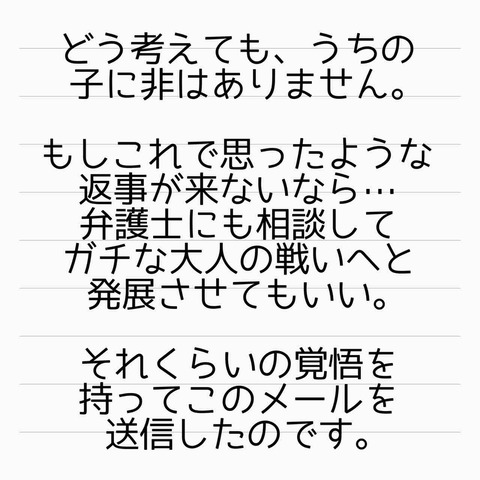 どう考えても、うちの
子に非はありません。
もしこれで思ったような
返事が来ないなら…
弁護士にも相談して
ガチな大人の戦いへと
発展させてもいい。
それくらいの覚悟を
持ってこのメールを
送信したのです。